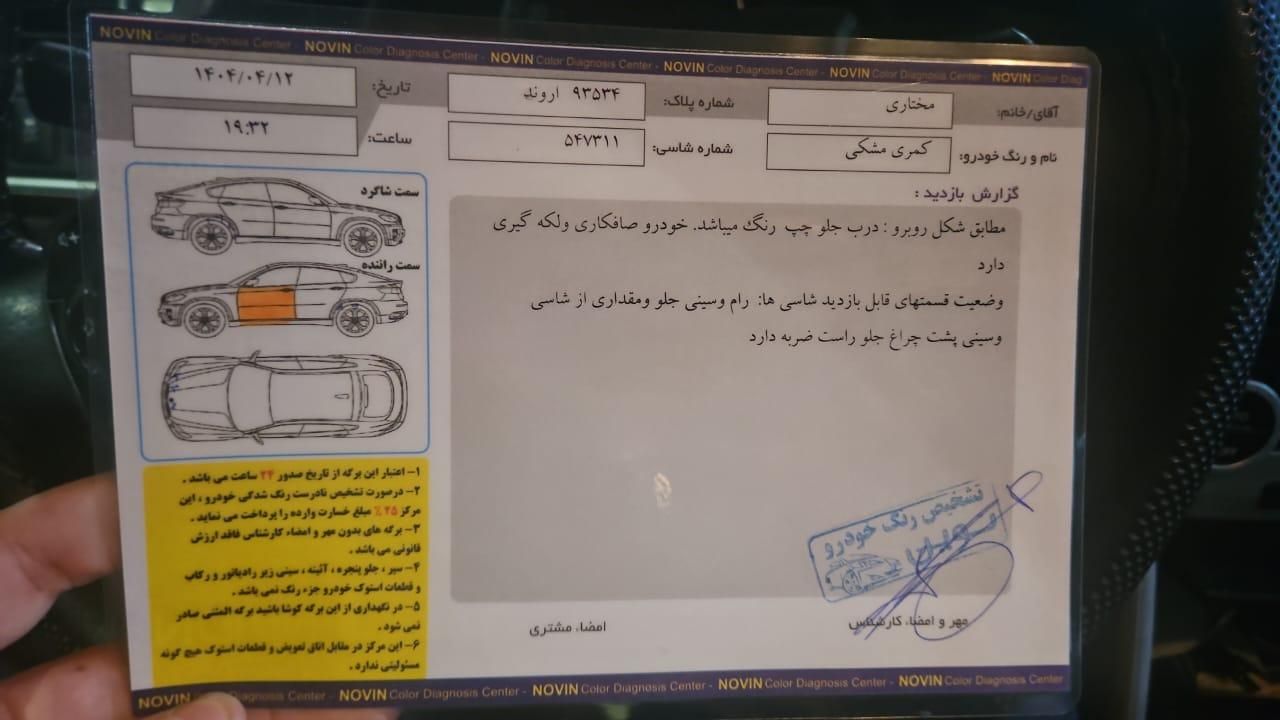 NOVIN Color Diagnosis Center - NOVIN Color Diagnosis Center - NOVIN Color Diagnosis Center - NOVIN Color Diagnosis Center - NOVIN Color Diagnosis Center - NOVIN Color Diag
آقای/خانم: مختاری شماره پلاک: ۹۳۵۳۴ اروند تاریخ: ۱۴۰۴/۰۴/۱۲
نام و رنگ خودرو: کمری مشکی شماره شاسی: ۵۴۷۳۱۱ ساعت: ۱۹:۳۲
گزارش بازدید :
مطابق شکل روبرو : درب جلو چپ رنگ میباشد. خودرو صافکاری ولکه گیری
دارد
وضعیت قسمتهای قابل بازدید شاسی ها: رام وسینی جلو ومقداری از شاسی
وسینی پشت چراغ جلو راست ضربه دارد
سمت شاگرد
سمت راننده
۱- اعتبار این برگه از تاریخ صدور ۲۴ ساعت می باشد .
۲- درصورت تشخیص نادرست رنگ شدگی خودرو ، این
مرکز ۲۵ ٪ مبلغ خسارت وارده را پرداخت می نماید .
۳- برگه های بدون مهر و امضاء کارشناس فاقد ارزش
قانونی می باشد .
۴- سپر ، جلو پنجره ، آئینه ، سینی زیر رادیاتور و رکاب
و قطعات استوک خودرو جزء رنگ نمی باشد .
۵- در نگهداری از این برگه کوشا باشید برگه المثنی صادر
نمی شود .
۶- این مرکز در مقابل اتاق تعویض و قطعات استوک هیچ گونه
مسئولیتی ندارد .
تشخیص رنگ خودرو
مهر و امضاء کارشناس
امضاء مشتری
NOVIN Color Diagnosis Center - NOVIN Color Diagnosis Center - NOVIN Color Diagnosis Center - NOVIN Color Diagnosis Center - NOVIN Color Diagnosis Center